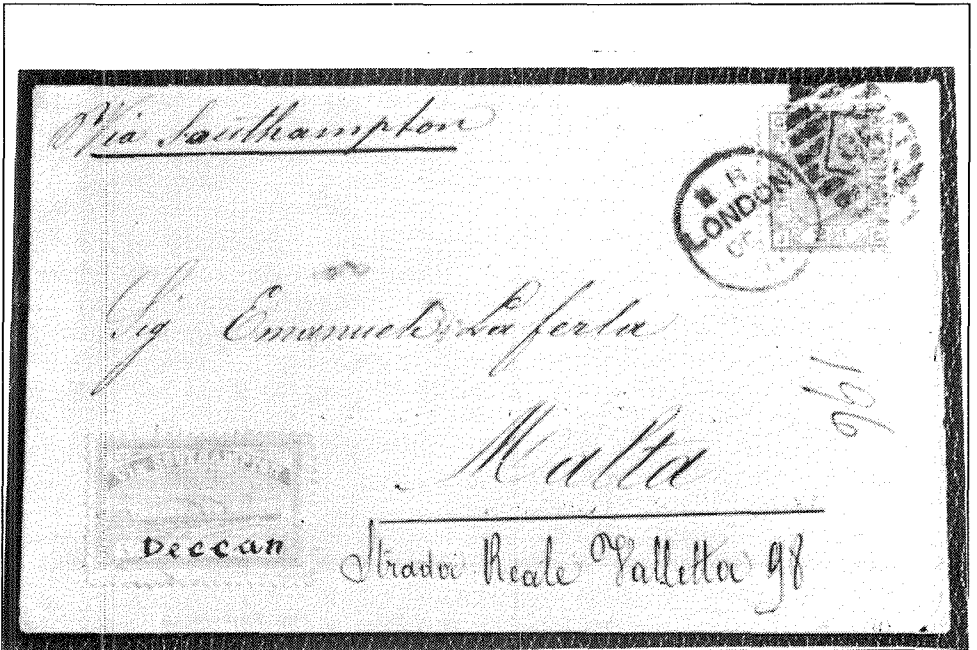 Via Southampton
LONDON
Sig Emanuele La ferla
196
Malta
Deccan
Strada Reale Valletta 98